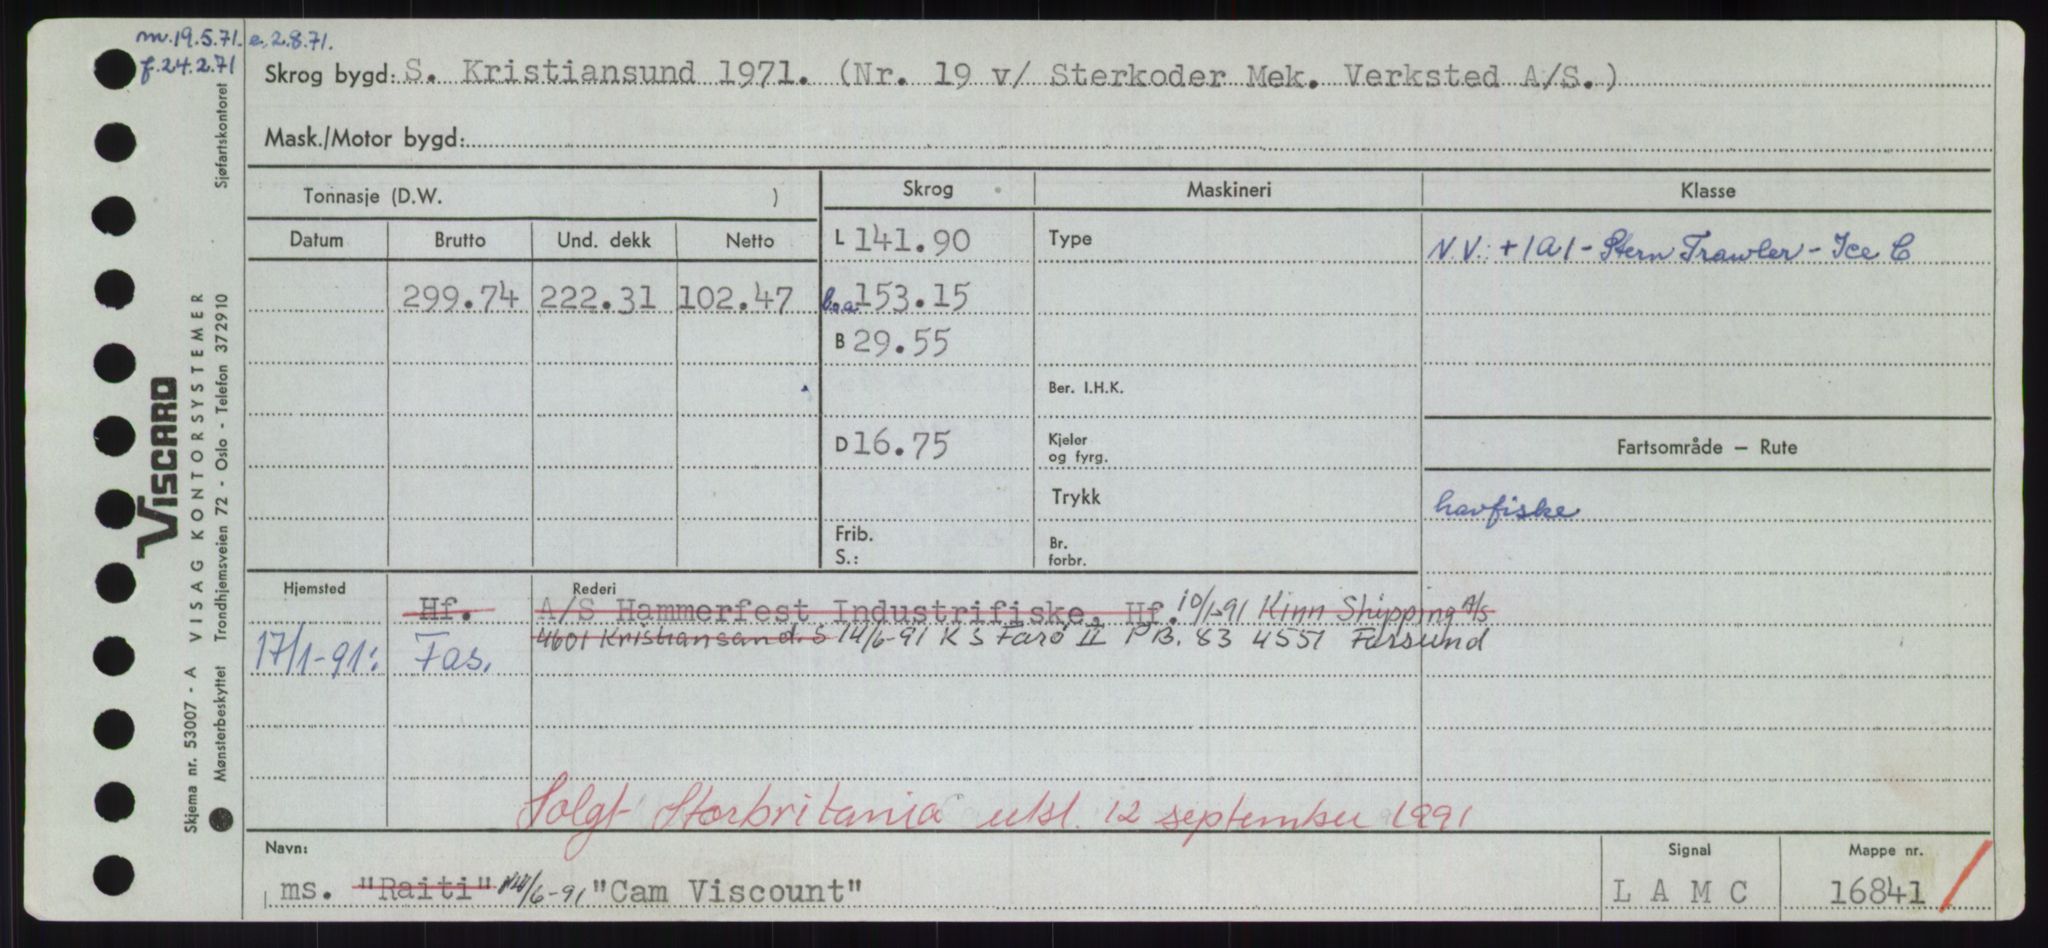 m. 19.5.71. e. 2.8.71.
f. 24.2.71
Skrog bygd: S. Kristiansund 1971. (Nr. 19 v/ Sterkoder Mek. Verksted A/S.)
Mask./Motor bygd:
Tonnasje (D.W. )
Skrog
Maskineri
Klasse
Datum
Brutto
Und. dekk
Netto
L 141.90
Type
N.V. +1A1 - Stern Trawler - Ice C
299.74
222.31
102.47
l.oa 153.15
B 29.55
Ber. I.H.K.
D 16.75
Kjeler
og fyrg.
Fartsområde — Rute
Trykk
havfiske
Frib.
S.:
Br.
forbr.
Hjemsted
Rederi
Hf.
A/S Hammerfest Industrifiske, Hf. 10/1-91 Kinn Shipping A/S
17/1-91:
Fas.
4601 Kristiansand. S 14/6-91 K S Farø II P B. 83 4551 Farsund
Solgt Storbritania utsl. 12 september 1991
Navn:
Signal
Mappe nr.
ms. "Raiti" 14/6-91 "Cam Viscount"
L A M C
16841
Skjema nr. 53007 - A VISAG KONTORSYSTEMER Sjøfartskontoret
Mønsterbeskyttet Trondhjemsveien 72 - Oslo - Telefon 372910
VISCARD